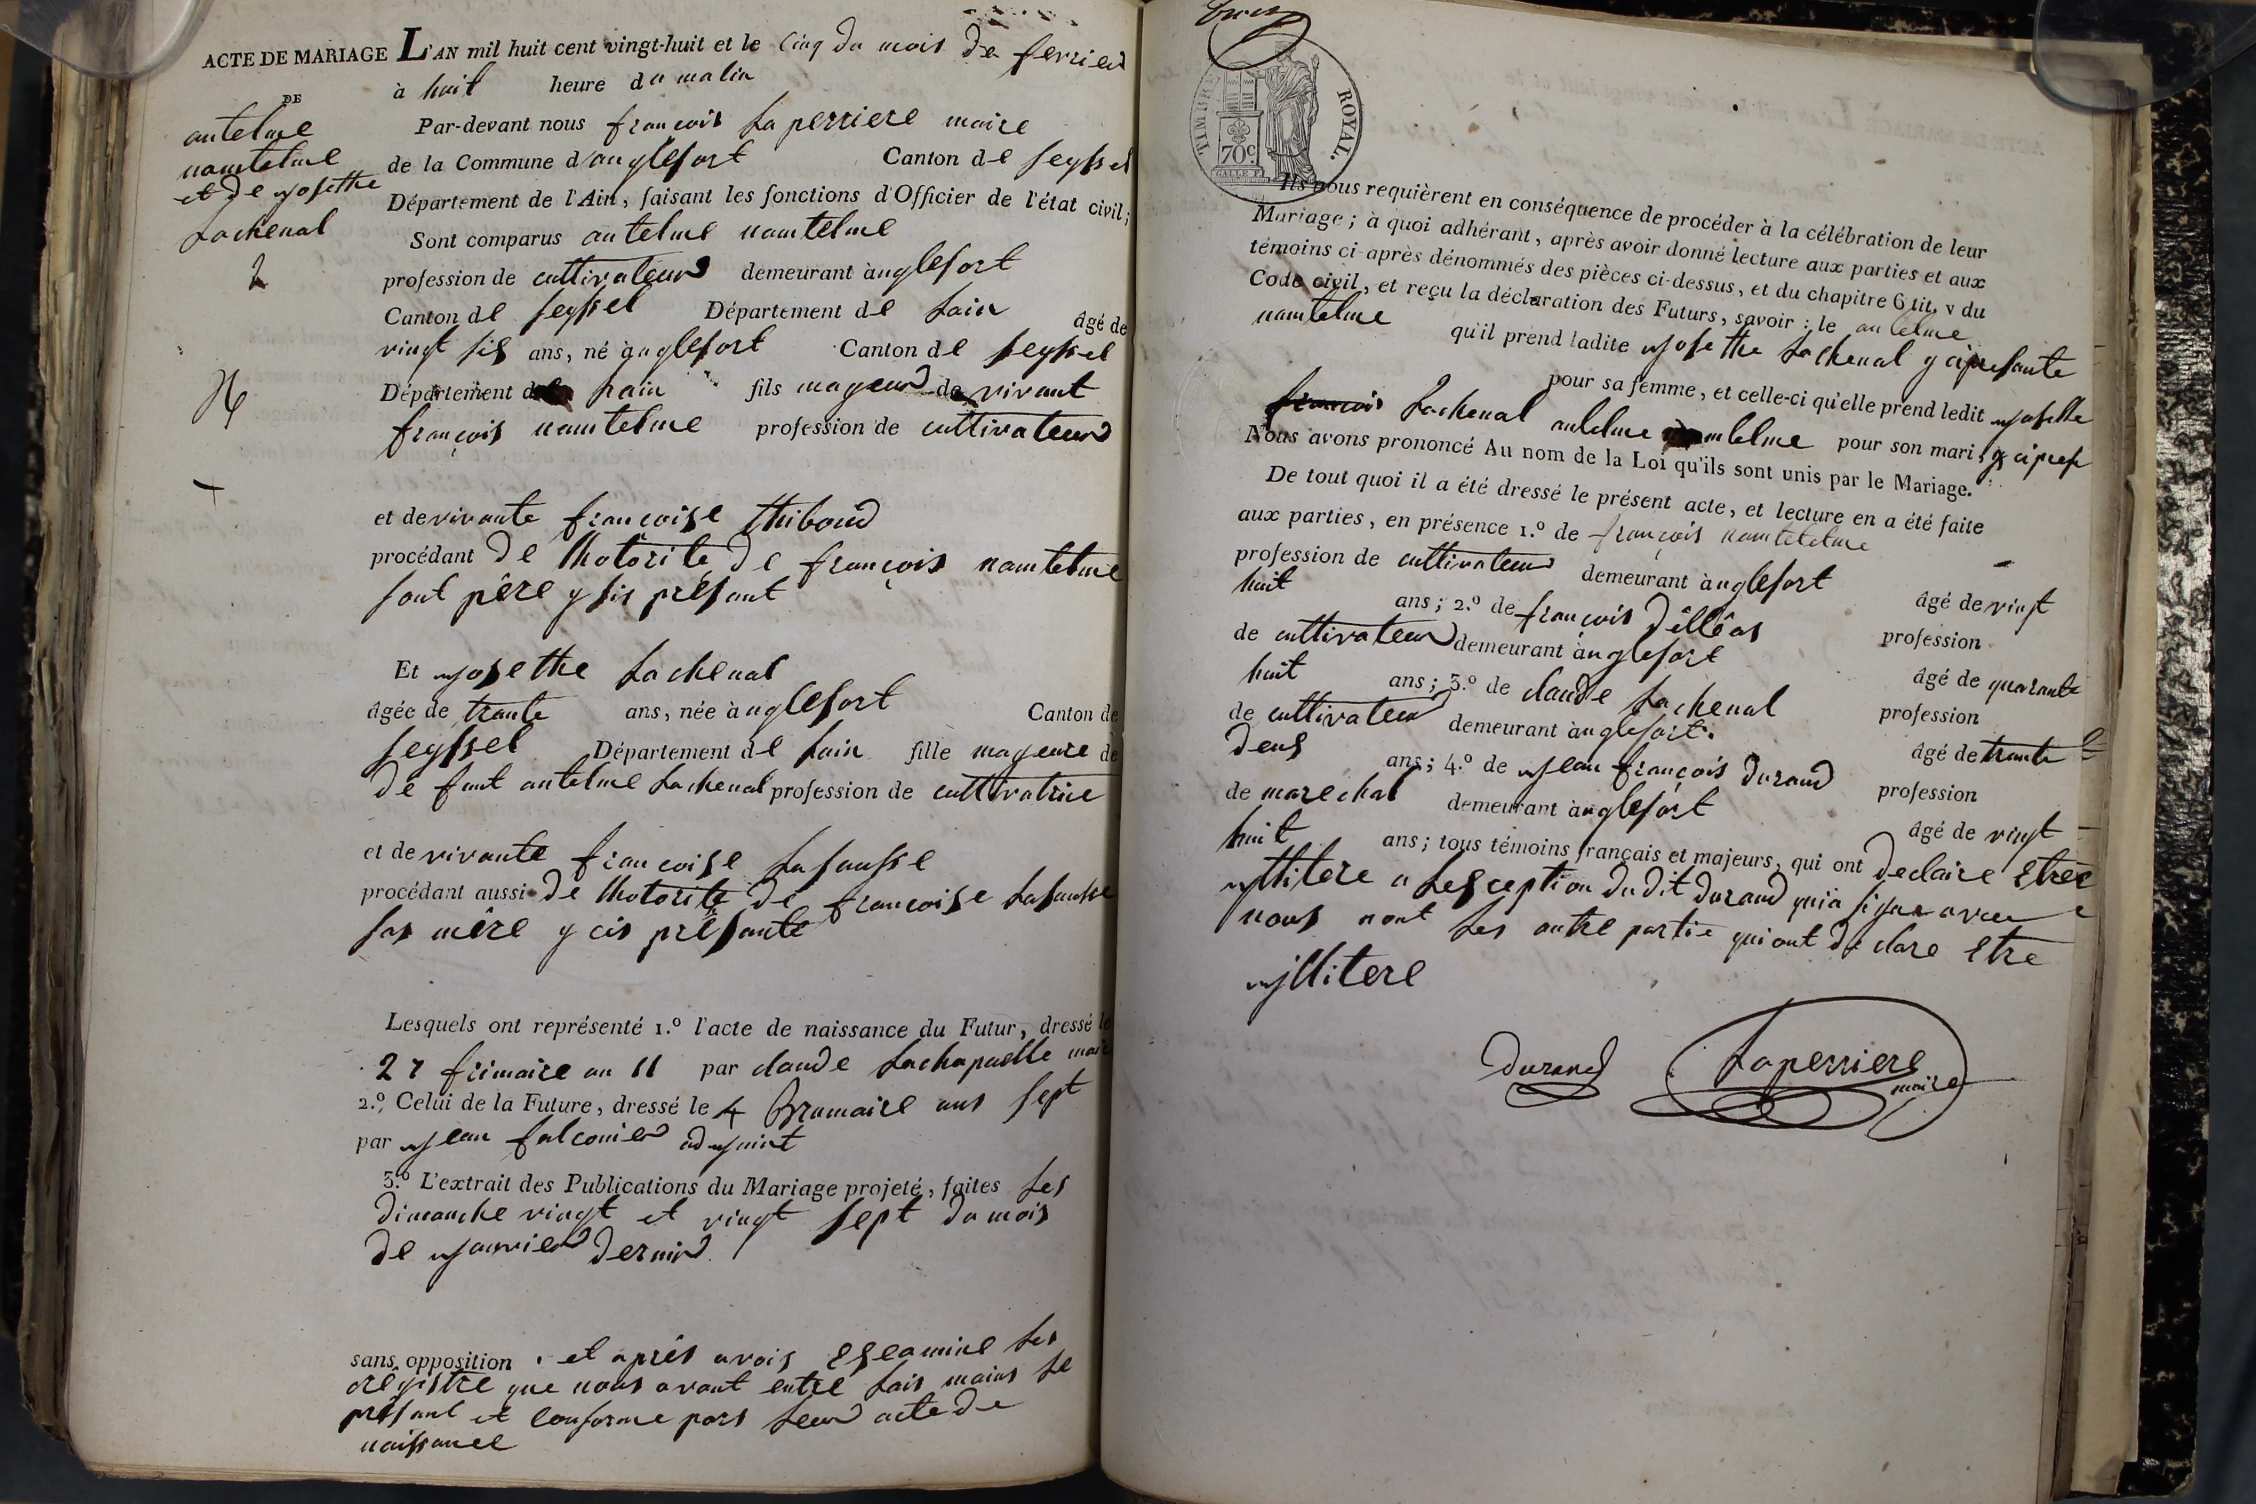 ACTE DE MARIAGE L'AN mil huit cent vingt-huit et le cinq du mois de ferrier
DE
à huit heure du matin
antelme
namtelme
et de josethe
Lachenal
2
Par-devant nous françois Laperriere maire
de la Commune d'anglefort Canton de seyssel
Département de l'Ain, faisant les fonctions d'Officier de l'état civil;
Sont comparus antelme namtelme
profession de cultivateur demeurant à nglefort
Canton de seyssel Département de Lain âgé de
vingt sis ans, né à nglefort Canton de seyssel
Département de Lain fils mageur de vivant
françois namtelme profession de cultivateur
et de vivante françoise thiboud
procédant de lhotorite de françois namtelme
sont père y sis présant
Et josethe Lachenal
âgée de trante ans, née à nglefort Canton de
seyssel Département de Lain fille mageure de
de faut antelme Lachenal profession de cultivatrice
et de vivante françoise Lasausse
procédant aussi de lhotorite de françoise Lasausse
sas mère y cis présante
Lesquels ont représenté 1.º l'acte de naissance du Futur, dressé le
27 frimaire an 11 par claude Lachapuelle maire
2.º Celui de la Future, dressé le 4 Brumaire ans sept
par jean falconier adjoint
3.º L'extrait des Publications du Mariage projeté, faites Les
dimanche vingt et vingt sept du mois
de janvier dernier
sans opposition. et après avois esseamine Les
registre que nous avont entre Lais mains Le
présant et conforme pars Leur acte de
naissance
TIMBRE ROYAL.
70c
Ils nous requièrent en conséquence de procéder à la célébration de leur
Mariage; à quoi adhérant, après avoir donné lecture aux parties et aux
témoins ci-après dénommés des pièces ci-dessus, et du chapitre 6 tit. v du
Code civil, et reçu la déclaration des Futurs, savoir: le antelme
namtelme qu'il prend ladite josethe Lachenal y ci presante
pour sa femme, et celle-ci qu'elle prend ledit josethe
françois Lachenal antelme namtelme pour son mari, y ci pres
Nous avons prononcé Au nom de la Loi qu'ils sont unis par le Mariage.
De tout quoi il a été dressé le présent acte, et lecture en a été faite
aux parties, en présence 1.º de françois namtelme
profession de cultivateur demeurant à nglefort âgé de vingt
huit ans; 2.º de françois dêlléas profession
de cultivateur demeurant à nglefort âgé de quarante
huit ans; 3.º de claude Lachenal profession
de cultivateur demeurant à nglefort. âgé de trante
deus ans; 4.º de jean françois durand profession
de marechal demeurant à nglefort âgé de vingt
huit ans; tous témoins français et majeurs, qui ont declaire Etre
jllitere a Lesception du dit durand qui a signe avec
nous nont Les autre partie qui ont declare Etre
jllitere
Durand Laperriere
maire